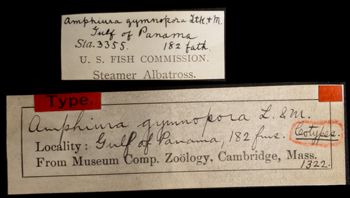 Amphiura gymnopora Ltk. & M.
Gulf of Panama
Sta. 3355. 182 fath.
U. S. FISH COMMISSION.
Steamer Albatross.
Type.
Amphiura gymnopora L. & M.
Locality: Gulf of Panama, 182 fms. Cotypes.
From Museum Comp. Zoölogy, Cambridge, Mass.
1322